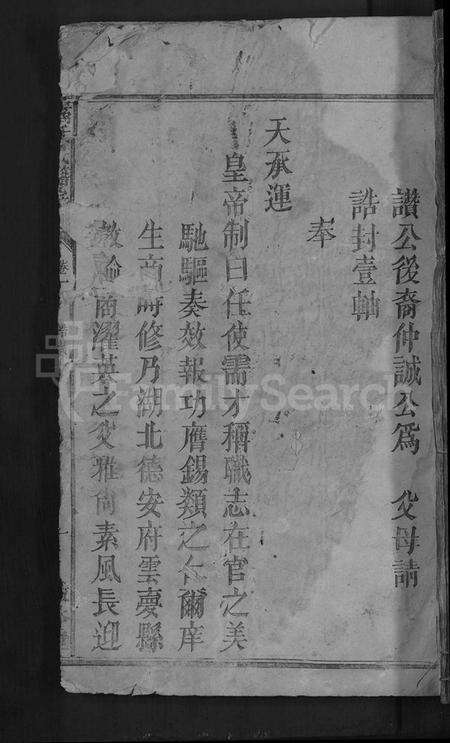 讚公後裔仲誠公爲　父母請
誥封壹軸
奉
天承運
皇帝制曰任使需才稱職志在官之美
馳驅奏效報功膺錫類之　爾庠
生商　修乃湖北德安府雲夢縣
教諭商濯英之父雅尚素風長迎
FamilySearch